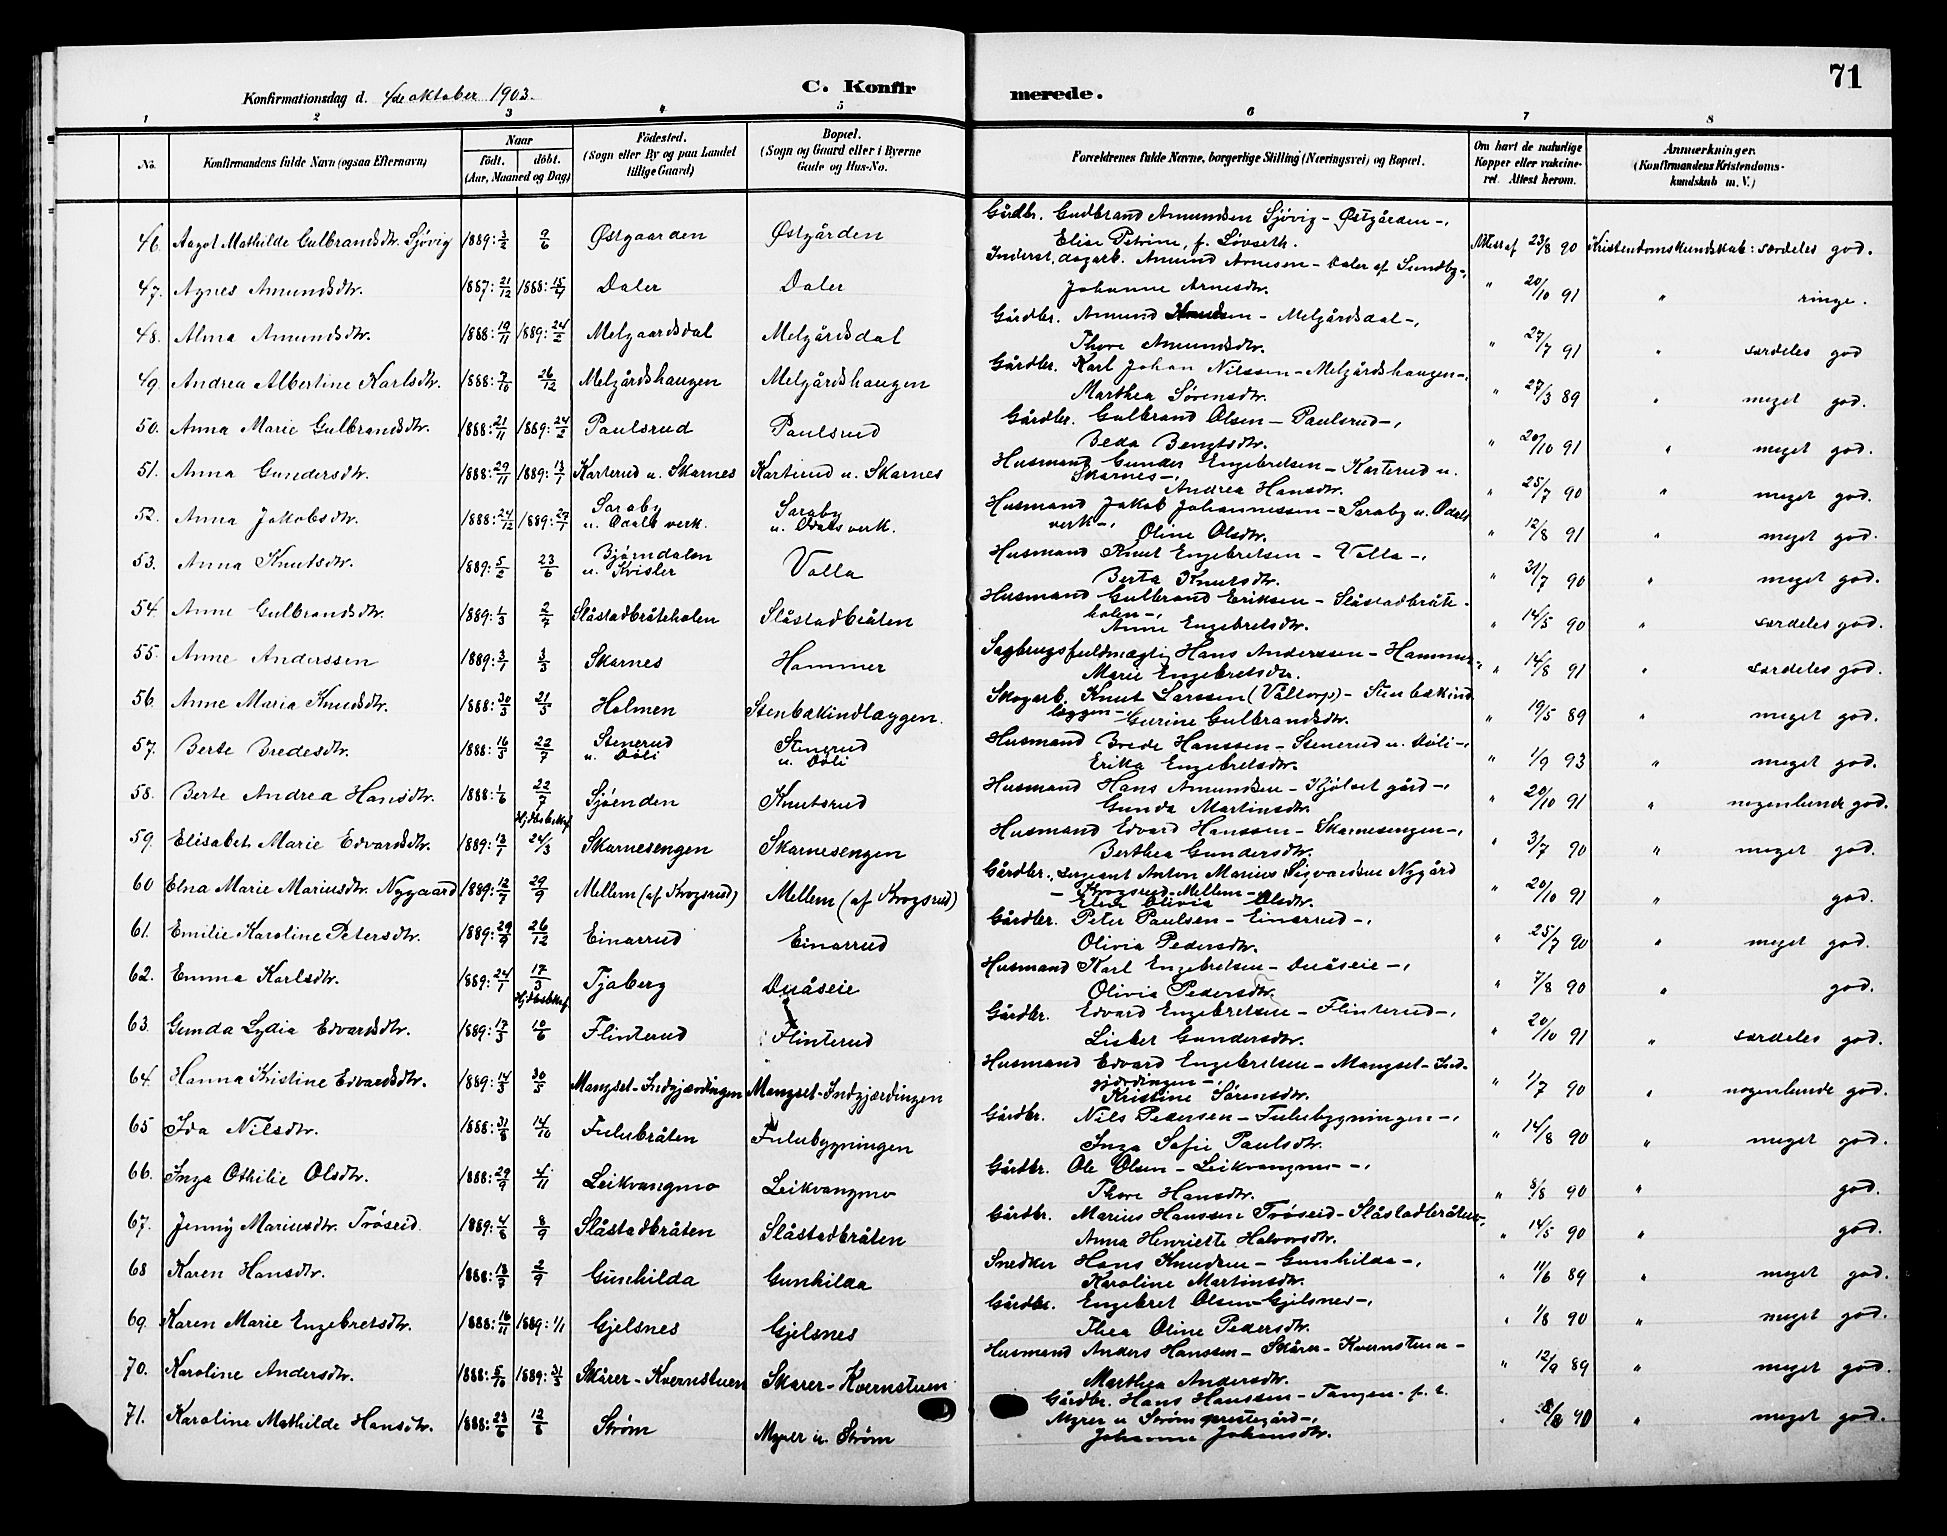 71
Konfirmationsdag d. 4de oktober 1903. C. Konfirmerede.
1 2 3 4 5 6 7 8
No. Konfirmandens fulde Navn (ogsaa Efternavn) Naar født. døbt. (Aar, Maaned og Dag) Fødested. (Sogn eller By og paa Landet tillige Gaard) Bopæl. (Sogn og Gaard eller i Byerne Gade og Hus-No. Forældrenes fulde Navne, borgerlige Stilling (Næringsvei) og Bopæl. Om havt de naturlige Kopper eller vakcineret. Attest herom. Anmærkninger. (Konfirmandens Kristendomskundskab m. V.)
46. Aagot Mathilde Gulbrandsdtr. Sjøvig 1889: 3/2 9/6 Østgaarden Østgården Gårdbr. Gudbrand Amundsen Sjøvig - Østgården -,
Elise Petrine, f. Løvseth. Attest af 23/8 90 Kristendomskundskab: særdeles god.
47. Agnes Amundsdtr. 1887: 21/12 1888: 15/4 Daler Daler Inderst, dagarb. Amund Arnesen - Daler af Sundby -,
Johanne Arnesdtr. " 20/10 91 " ringe.
48. Alma Amundsdtr. 1888: 19/11 1889: 24/2 Melgaardsdal Melgårdsdal Gårdbr. Amund Knudsen - Melgårdsdal -,
Thore Amundsdtr. " 27/7 91 " særdeles god
49. Andrea Albertine Karlsdtr. 1888: 7/10 26/12 Melgårdshaugen Melgårdshaugen Gårdbr. Karl Johan Nilssen - Melgårdshaugen -,
Marthea Sørensdtr. " 27/3 89 " meget god.
50. Anna Marie Gulbrandsdtr. 1888: 21/11 1889: 24/2 Paulsrud Paulsrud Gårdbr. Gulbrand Olsen - Paulsrud -,
Beda Bengtsdtr. " 20/10 91 " meget god.
51. Anna Gundersdtr. 1888: 29/11 1889: 13/1 Karterud u. Skarnes Karterud u. Skarnes Husmand Gunder Engebretsen - Karterud u.
Skarnes -, Andrea Hansdtr. " 25/7 90 " meget god.
52. Anna Jakobsdtr. 1888: 24/12 1889: 29/7 Saraby u. Odals verk. Saraby u. Odals verk. Husmand Jakob Johannessen - Saraby u. Odals
verk -, Oline Olsdtr. " 12/8 91 " meget god.
53. Anna Knutsdtr. 1889: 5/2 23/6 Bjørndalen u. Kvisler Valla Husmand Knut Engebretsen - Valla -,
Berta Knutsdtr. " 31/7 90 " meget god.
54. Anne Gulbrandsdtr. 1889: 1/3 2/7 Slåstadbråteholen Slåstadbråten Husmand Gulbrand Eriksen - Slåstadbråte-
holen -, Anne Engebretsdtr. " 14/5 90 " særdeles god.
55. Anne Anderssen 1889: 3/1 3/3 Skarnes Hammer Sagbrugsfuldmægtig Hans Anderssen - Hammer -,
Marie Engebretsdtr. " 14/8 91 " særdeles god.
56. Anne Maria Knudsdtr. 1888: 30/3 21/5 Holmen Stenbækindlæggen. Skogarb. Knut Larssen (Våltorp) - Stenbækind
læggen -, Gurine Gulbrandsdtr. " 19/5 89 " meget god.
57. Berte Bredesdtr. 1888: 16/5 22/7 Stenerud u. Døli Stenerud u. Døli Husmand Brede Hanssen - Stenerud u. Døli -,
Erika Engebretsdtr. " 1/9 93 " meget god.
58. Berte Andrea Hansdtr. 1888: 1/6 22/7 Sjøenden Knutsrud Husmand Hans Amundsen - Kjølset gård -,
Gunda Martinsdtr. " 20/10 91 " nogenlunde god.
59. Elisabet Marie Edvardsdtr. 1889: 13/1 Hjdbsbekræf. 24/3 Skarnesengen Skarnesengen Husmand Edvard Hanssen - Skarnesengen -,
Berthea Gundersdtr. " 3/7 90 " meget god.
60 Elna Marie Mariusdtr. Nygaard 1889: 12/7 29/9 Mellem (af Krogsrud) Mellem (af Krogsrud) Gårdbr., sergeant Anton Marius Sigvardsen Nygård
- Krogsrud-Mellem -
Eline Olivia Olsdtr. " 20/10 91 " god.
61. Emilie Karoline Petersdtr. 1889: 29/9 26/12 Einarrud Einarrud Gårdbr. Peter Paulsen - Einarrud -,
Olivia Pedersdtr. " 25/7 90 " meget god.
62. Emma Karlsdtr. 1889: 24/1 17/3 Hjdbsbekræf. Tjaberg Duåseie Husmand Karl Engebretsen - Duåseie -,
Olivia Pedersdtr. " 7/8 90 " god.
63. Gunda Lydia Edvardsdtr. 1889: 17/3 10/6 Flinterud Flinterud Gårdbr. Edvard Engebretsen - Flinterud -,
Lisbet Gundersdtr. " 20/10 91 " særdeles god.
64. Hanna Kristine Edvardsdtr. 1889: 14/3 30/5 Mangset-Indgjærdingen Mangset-Indgjærdingen Husmand Edvard Engebretsen - Mangset-Ind-
gjærdingen -, Kristine Sørensdtr. " 1/7 90 " nogenlunde god.
65 Ida Nilsdtr. 1888: 31/8 14/10 Fulubråten Fulubygningen Gårdbr. Nils Pedersen - Fulubygningen -,
Inga Sofie Paulsdtr. " 14/8 90 " meget god.
66. Inga Othilie Olsdtr. 1888: 29/9 4/11 Leikvangmo Leikvangmo Gårdbr. Ole Olsen - Leikvangmo -,
Thore Hansdtr. " 8/8 90 " god.
67. Jenny Mariusdtr. Trøseid 1889: 4/6 8/9 Slåstadbråten Slåstadbråten Gårdbr. Marius Hanssen Trøseid - Slåstadbråten -,
Anna Henriette Halvorsdtr. " 14/5 90 " god.
68 Karen Hansdtr. 1888: 13/7 2/9 Gunhilda Gunhilda Snedker Hans Knudsen - Gunhilda -,
Karoline Martinsdtr. " 11/6 89 " meget god.
69. Karen Marie Engebretsdtr. 1888: 16/11 1889: 1/1 Gjelsnes Gjelsnes Gårdbr. Engebret Olsen - Gjelsnes -,
Thea Oline Pedersdtr. " 1/8 90 " meget god.
70. Karoline Andersdtr. 1888: 5/10 1889: 31/3 Skårer-Kvernstuen Skårer-Kvernstuen Husmand Anders Hanssen - Skårer-Kvernstuen -
Marthea Andersdtr. " 12/9 89 " meget god.
71. Karoline Mathilde Hansdtr. 1888: 23/6 12/8 Strøm Myrer u. Strøm Gårdbr. Hans Hanssen - Tangen - f. t.
Myrer u Strøm prestegård -,
Johanne Johansdtr. " 90 " meget god.